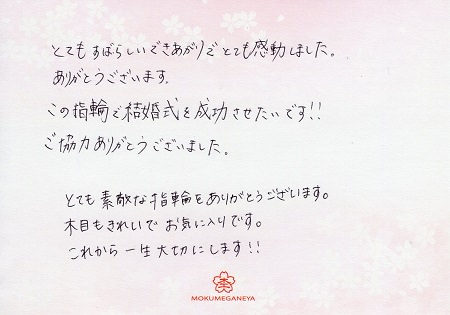 とてもすばらしいできあがりでとても感動しました。
ありがとうございます。
この指輪で結婚式を成功させたいです!!
ご協力ありがとうございました。
とても素敵な指輪をありがとうございます。
木目もきれいでお気に入りです。
これから一生大切にします!!
MOKUMEGANEYA